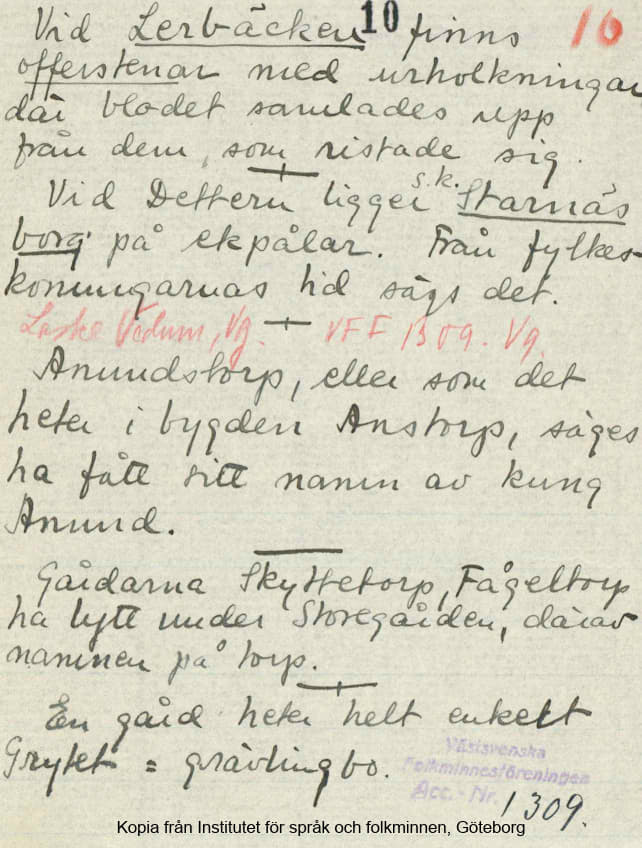 10 16
Vid Lerbäcken finns
offerstenar med urholkningar
där blodet samlades upp
från dem, som ristade sig.
Vid Dettern ligger s.k. Starnäs
borg på ekpålar. Från fylkes-
konungarnas tid sägs det.
Laske Vedum, Vg. VFF 1309. Vg.
Anundstorp, eller som det
heter i bygden Anstorp, säges
ha fått sitt namn av kung
Anund.
Gårdarna Skyttetorp, Fågeltorp
ha lytt under Storegården, därav
namnen på torp.
En gård heter helt enkelt
Grytet = grävlingbo.
Västsvenska
Folkminnesföreningen
Acc.-Nr. 1309.
Kopia från Institutet för språk och folkminnen, Göteborg